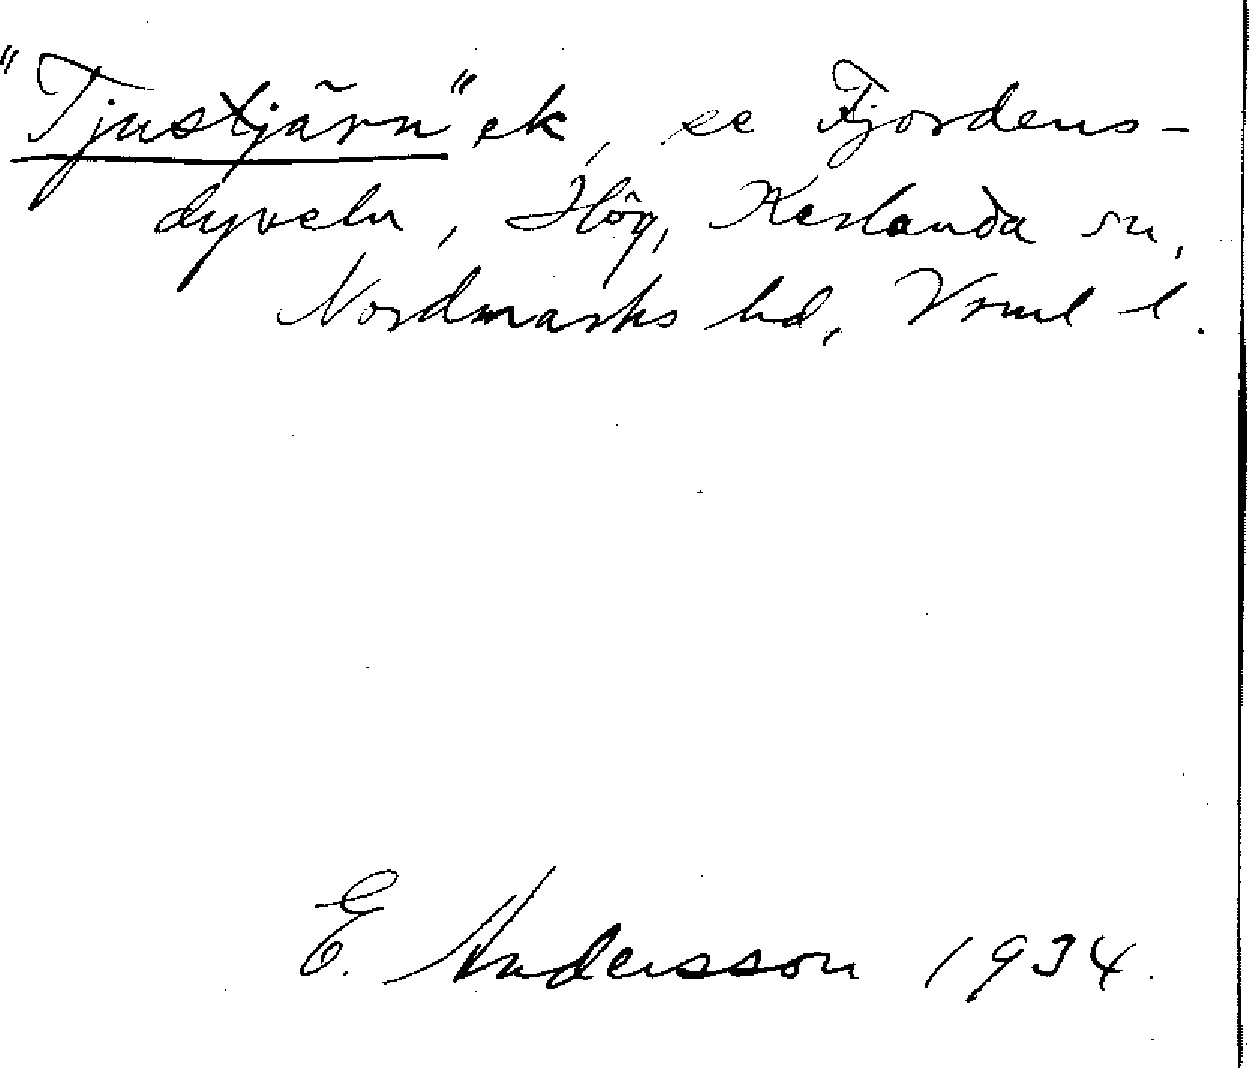 "Tjustjärn" ek, se Fjordens-
dyveln, Hög, Karlanda sn,
Nordmarks hd, Vrml l.
E. Andersson 1934.